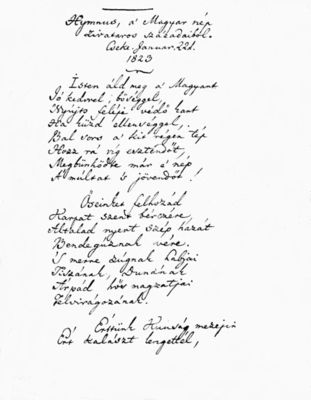 Hymnus, a' Magyar nép
zivataros századaiból.
Cseke Januar. 22d.
1823
Isten áld meg a' Magyart
Jó kedvvel, bőséggel,
Nyujts feléje védő kart
Ha küzd ellenséggel,
Bal sors a' kit régen tép
Hozz rá víg esztendőt,
Megbünhödte már e' nép
A' múltat 's jövendőt!
Őseinket felhozád
Kárpát szent bérczére,
Általad nyert szép hazát
Bendegúznak vére.
'S merre zúgnak habjai
Tiszának, Dunának
Árpád hős magzatjai
Felvirágozának.
Értünk Kunság mezejin
Ért kalászt lengettél,